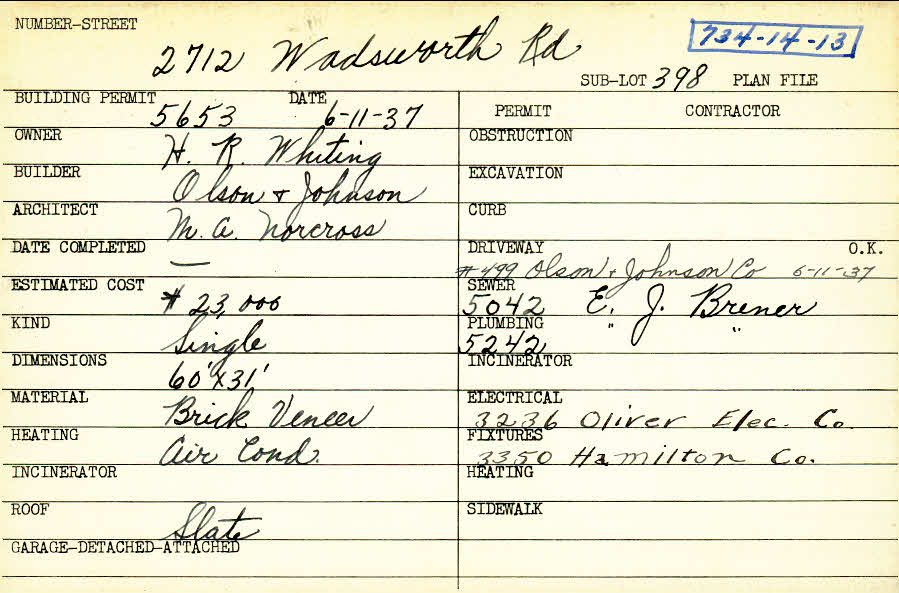 NUMBER-STREET
2712 Wadsworth Rd
734-14-13
SUB-LOT 398 PLAN FILE
BUILDING PERMIT 5653 DATE 6-11-37
PERMIT CONTRACTOR
OWNER H. R. Whiting
OBSTRUCTION
BUILDER Olson & Johnson
EXCAVATION
ARCHITECT M. A. Norcross
CURB
DATE COMPLETED —
DRIVEWAY O.K.
#499 Olson & Johnson Co 6-11-37
ESTIMATED COST $23,000
SEWER
5042 E. J. Brener
KIND Single
PLUMBING " "
5242
DIMENSIONS 60'x31'
INCINERATOR
MATERIAL Brick Veneer
ELECTRICAL
3236 Oliver Elec. Co.
HEATING Air Cond.
FIXTURES
3350 Hamilton Co.
INCINERATOR
HEATING
ROOF Slate
SIDEWALK
GARAGE-DETACHED-ATTACHED